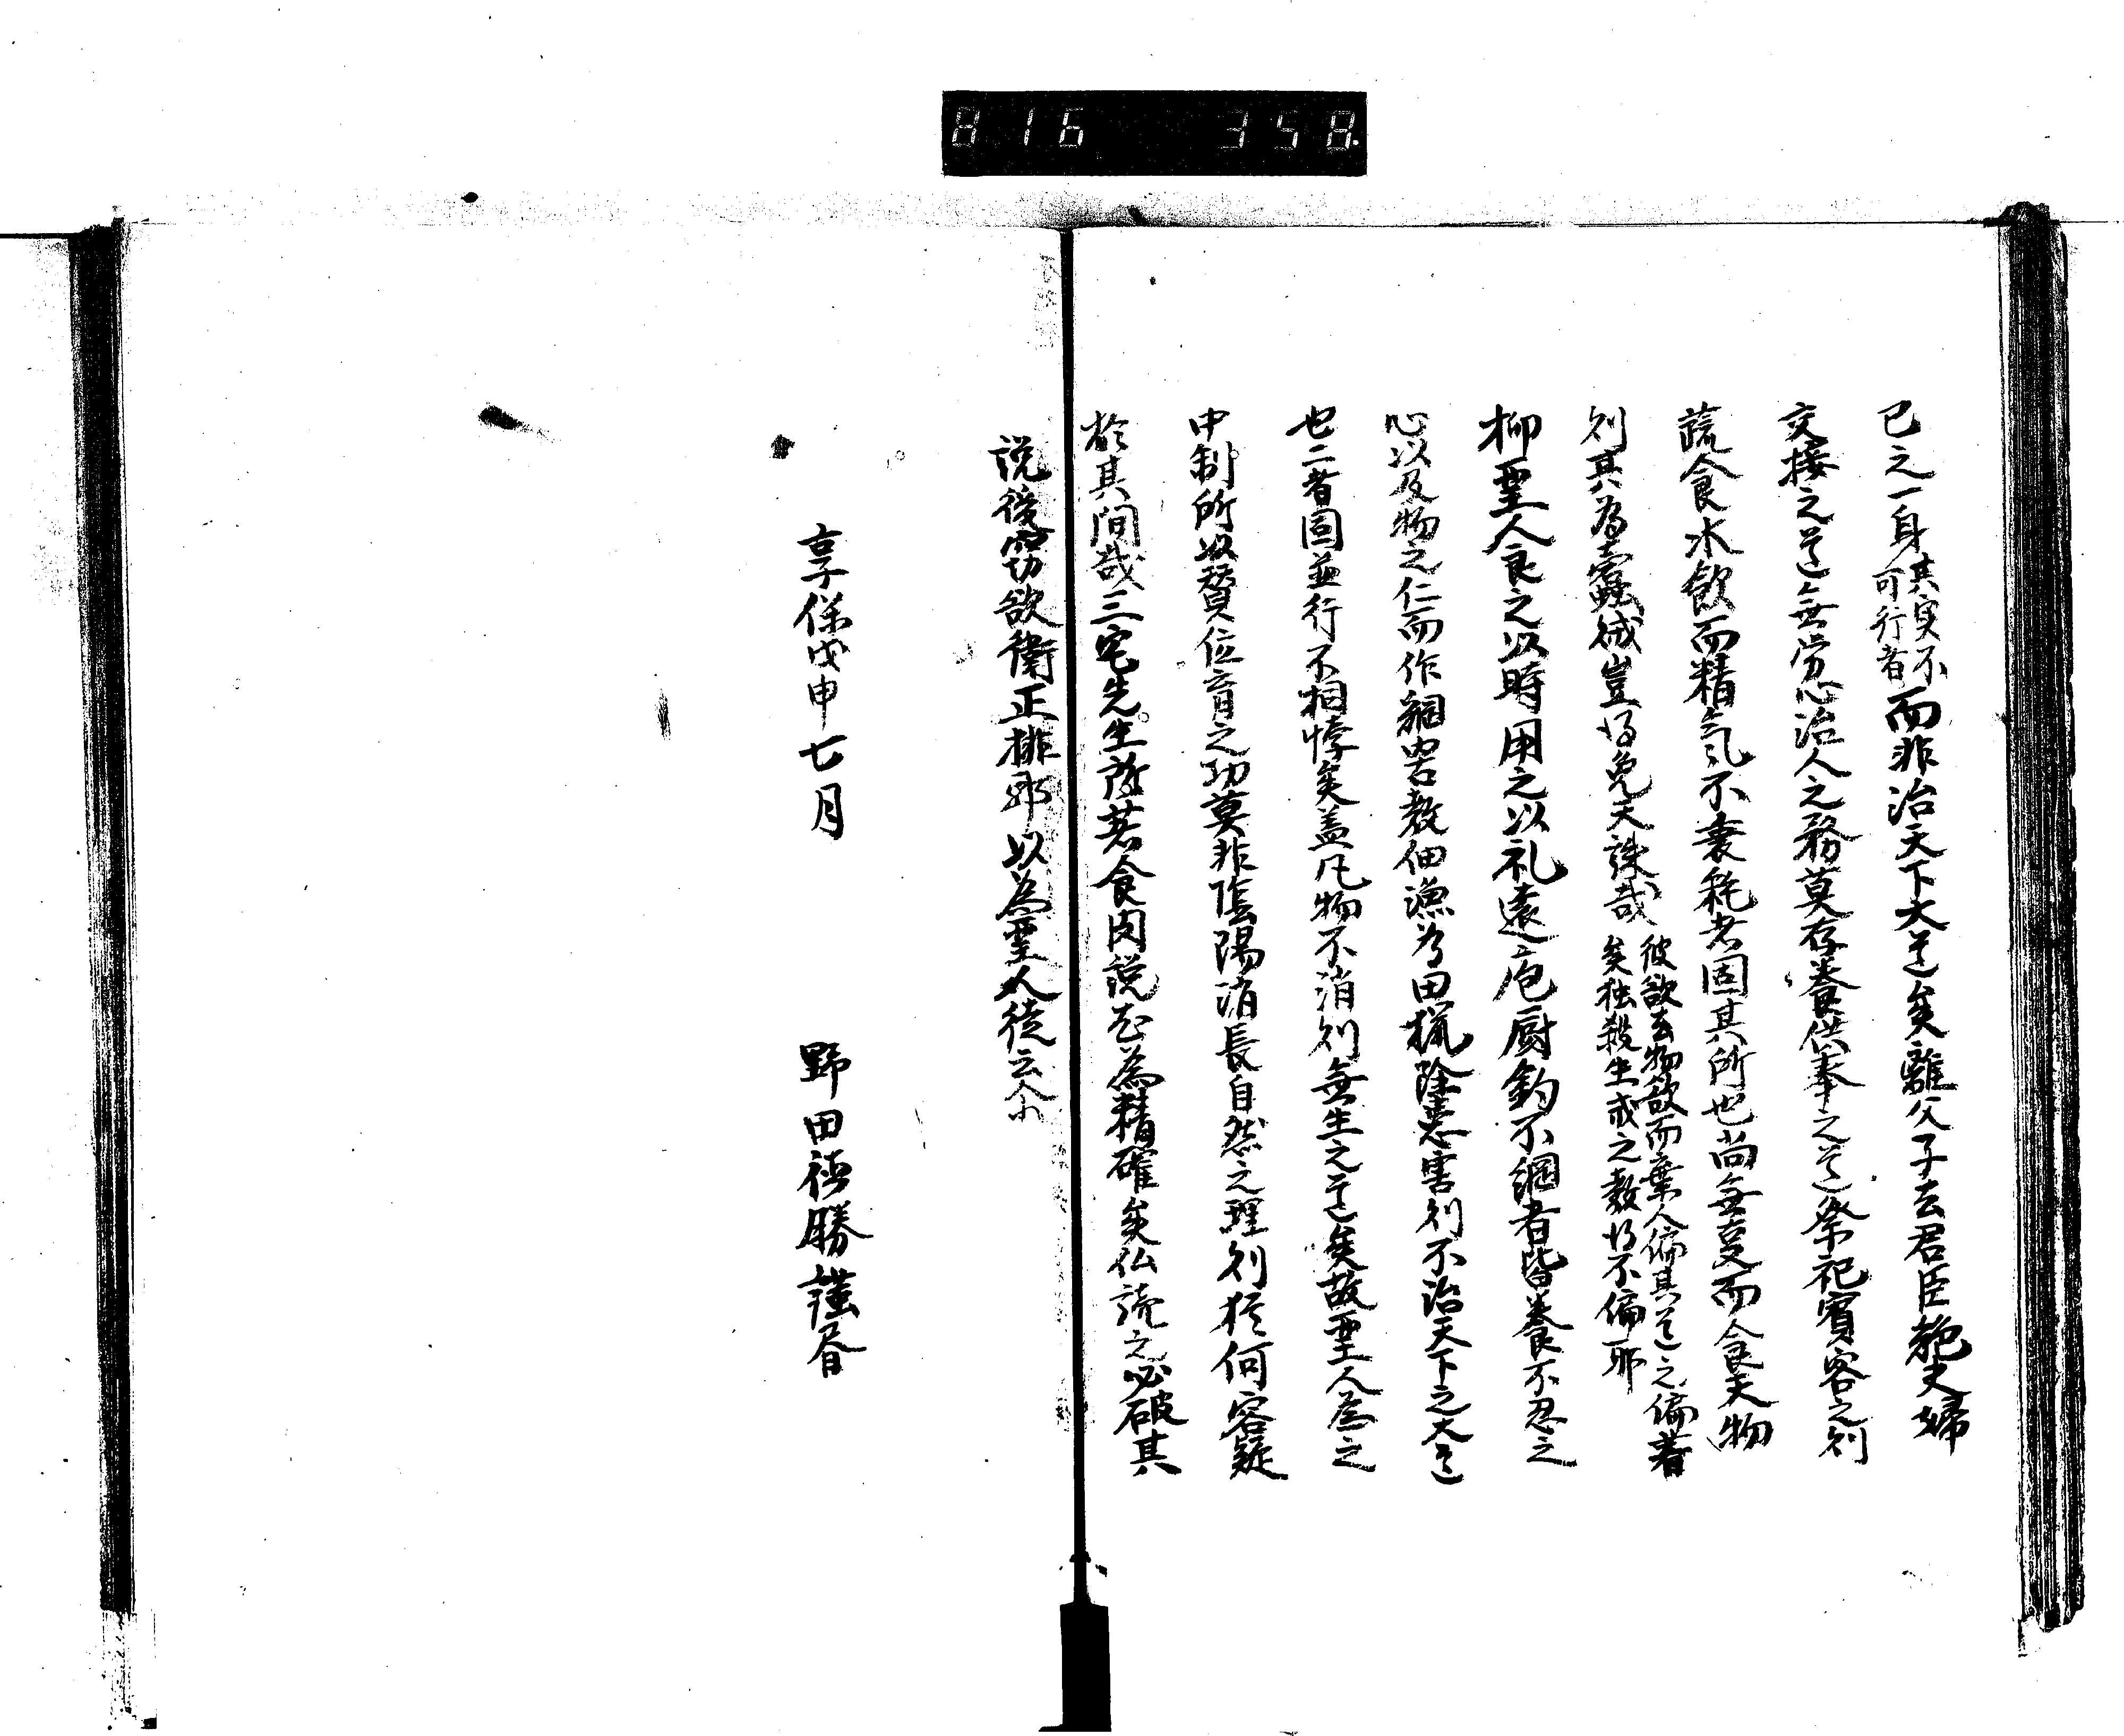 816 358
已之一身其実不可行者而非治天下大道矣離父子去君臣絶夫婦
交接之道無労心治人之務莫存養供奉之道祭祀賓客之則
蔬食水飲而精気不衰耗者固其所也尚無耳而食天物
則其為蠹賊豈得免天誅哉彼欲去物欲而棄人倫其道之偏著矣独殺生戒之教得不偏耶
抑聖人食之以時用之以礼遠庖厨釣不網者皆養不忍之
心以及物之仁而作網罟教佃漁為田猟除悪害則不治天下之大道
也二者固並行不相悖矣蓋凡物不消則無生之道矣故聖人為之
中制所以賛位育之功莫非陰陽消長自然之理則於何容疑
於其間哉三宅先生所著食肉説尤為精確矣仏読之必破其
説後窃欲衛正排邪以為聖人徒云尓
享保戊申七月
野田徳勝謹昏